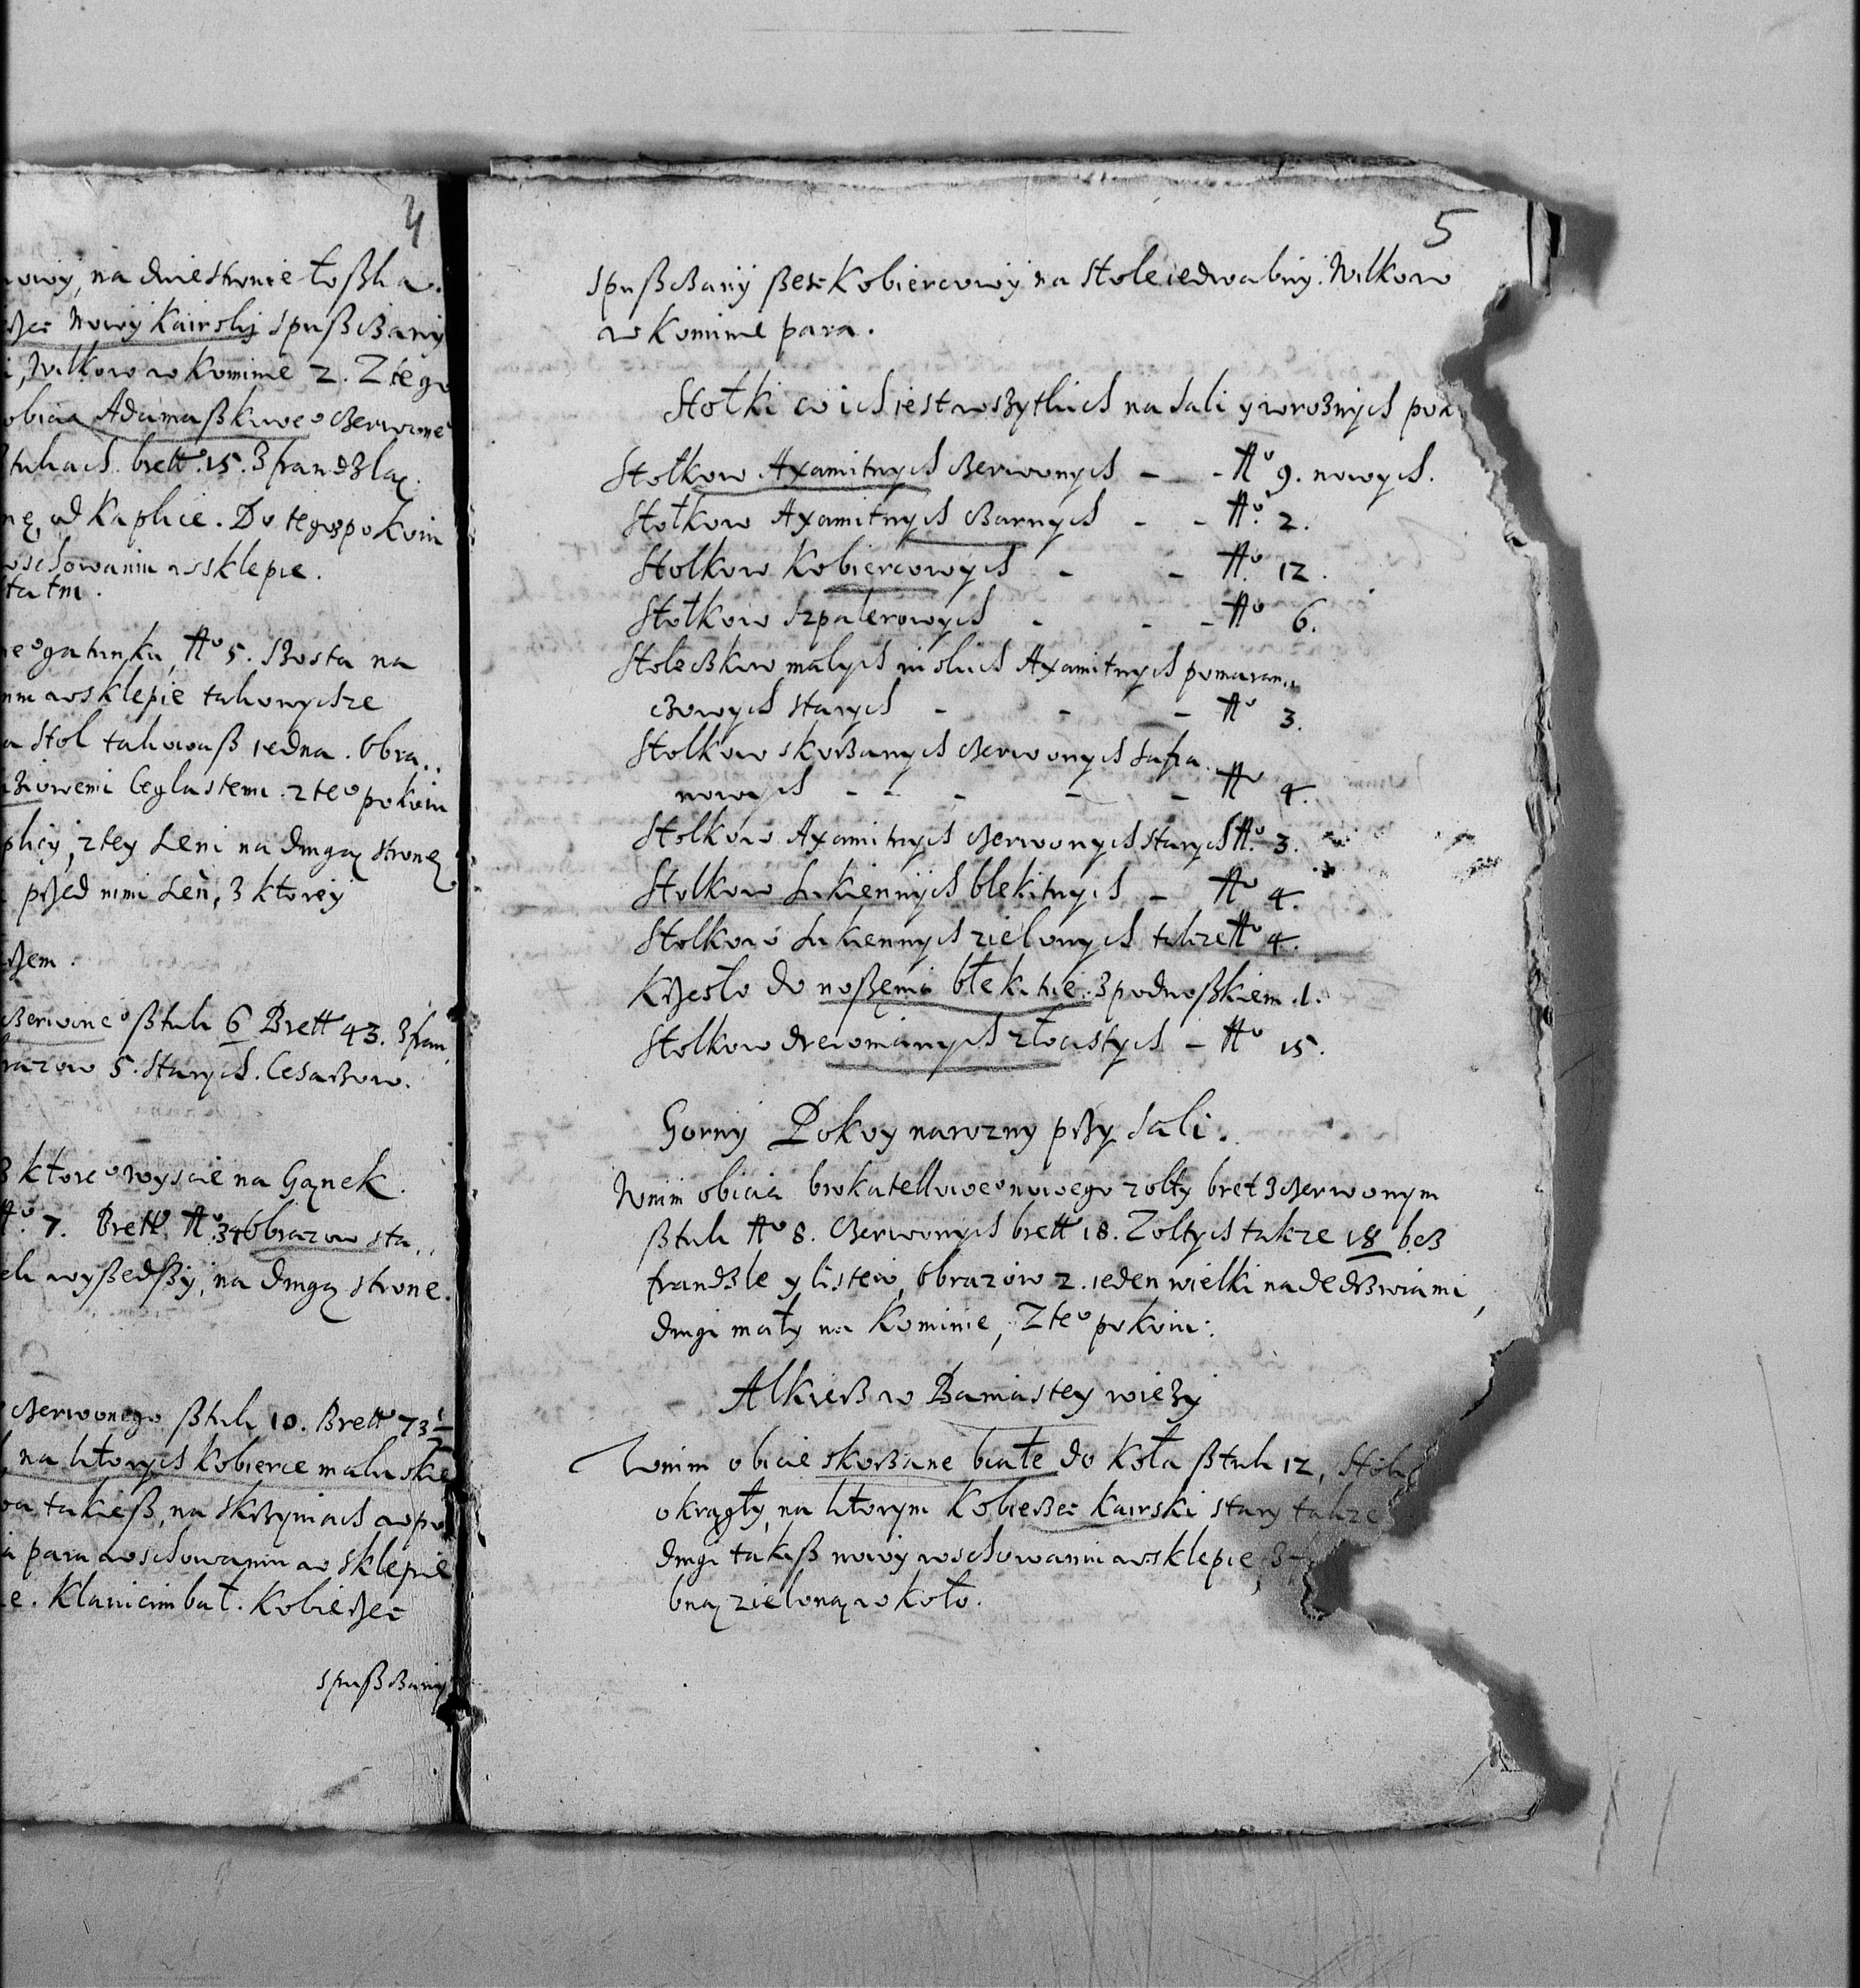 4
nowy, na dwie stronie łoßka.
rzec Nowy Kairskj spußczany
i, Wilkow w Kominie 2. Z tego
obicia Adamaßkoweo czerwoneo
ßtukach brett. 15. z frandzlą
nę, od Kaplice. Do tegoz pokoiu
w schowaniu w sklepie.
tatm.
neo gatunku, No 5. Szosta na
niu w sklepie takowychze
a Stol takowaß iedna. Obra..
ziowemi Ceglastemi. z teo pokoiu
plicy, z tey Seni na drugą stronę
przed nimi Seń, z ktorey
rzem.
czerwoneo ßtuk 6 Brett 43. z fran
razow 5. Starych. Cesarzow.
z ktoreo wyscie na Ganek.
No. 7. Brett. No. 34 Obrazow sta..
ch wyßedßy, na drugą strone.
czerwonego ßtuk 10. Brett 73½
na ktorych Kobierce maluskie
takieß, na skrzyniach w po
a para w schowaniu w sklepie
e. Klawicimbał. Kobierzec
spußczany
5
spußczany ßerc Kobiercowy na stole iedwabny. Wilkow
w Kominie para.
Stołki co ich iest wszytkich na Sali y w roznych pok
Stołkow Axamitnych czerwonych - - No 9. nowych.
Stołkow Axamitnych czarnych - - No. 2.
Stolkow Kobiercowych - - No. 12.
Stołkow szpalerowych - - - No 6.
Stoleczkow malych niskich Axamitnych pomaran..
czowych starych - - - No 3.
Stolkow skorzanych czerwonych safia
nowych - - - - - No 4.
Stolkow Axamitnych czerwonych starych No. 3.
Stolkow Sukiennych blekitnych - No 4.
Stolkow Sukiennych zielonych takze No 4.
Krzesło do noßenia błekitne z podnoßkiem. 1.
Stolkow drewnianych złocistych - No 15.
Gorny Pokoy narozny przy Sali.
W nim obicia brokatelloweo nowego zolty bret z czerwonym
ßtuk No 8. Czerwonych brett 18. Zoltych takze 18 bez
frandzle y listew, Obrazow 2. ieden wielki nadedrzwiami,
drugi mały na Kominie, Z teo pokoiu:
Alkierz w Baniastey wiezy
W nim obicie skorzane białe do koła ßtuk 12, Stol
okrągły, na ktorym Kobierzec Kairski stary takze
drugi takiß nowy w schowaniu w sklepie, z
bną zieloną w koło.